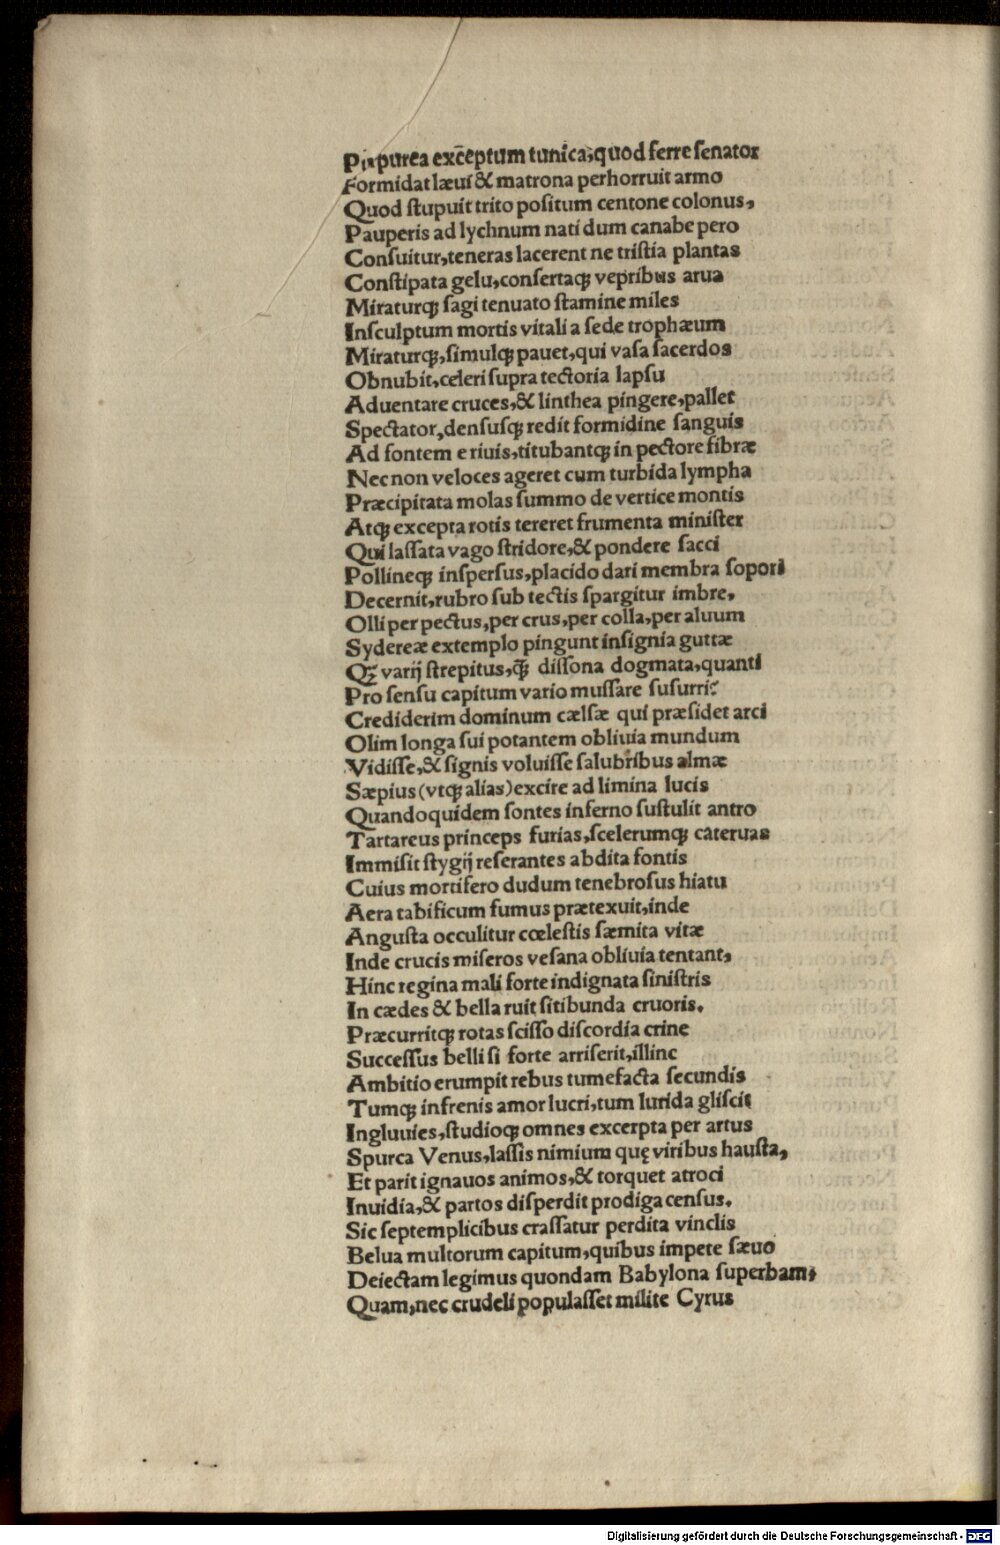 Purpurea excēptum tunica,quod ferre ſenator
Formidat læui & matrona perhorruit armo
Quod ſtupuit trito poſitum centone colonus,
Pauperis ad lychnum nati dum canabe pero
Conſuitur,teneras lacerent ne triſtia plantas
Conſtipata gelu,conſertaqꝫ vepribus arua
Miraturqꝫ ſagi tenuato ſtamine miles
Inſculptum mortis vitali a ſede trophæum
Miraturqꝫ,ſimulqꝫ pauet,qui vaſa ſacerdos
Obnubit,celeri ſupra tectoria lapſu
Aduentare cruces,& linthea pingere,pallet
Spectator,denſuſqꝫ redit formidine ſanguis
Ad fontem e riuis,titubantqꝫ in pectore fibræ
Nec non veloces ageret cum turbida lympha
Præcipitata molas ſummo de vertice montis
Atqꝫ excepta rotis tereret frumenta miniſter
Qui laſſata vago ſtridore,& pondere ſacci
Pollineqꝫ inſperſus,placido dari membra ſopori
Decernit,rubro ſub tectis ſpargitur imbre,
Olli per pectus,per crus,per colla,per aluum
Sydereæ extemplo pingunt inſignia guttæ
Qꝫ varij ſtrepitus,q̃ꝫ diſſona dogmata,quanti
Pro ſenſu capitum vario muſſare ſuſurri?
Crediderim dominum cælſæ qui præſidet arci
Olim longa ſui potantem obliuia mundum
Vidiſſe,& ſignis voluiſſe ſalubribus almæ
Sæpius (vtqꝫ alias) excire ad limina lucis
Quandoquidem ſontes inferno ſuſtulit antro
Tartareus princeps furias,ſcelerumqꝫ cateruas
Immiſit ſtygij reſerantes abdita fontis
Cuius mortifero dudum tenebroſus hiatu
Aera tabificum fumus prætexuit,inde
Anguſta occulitur cœleſtis ſæmita vitæ
Inde crucis miſeros veſana obliuia tentant,
Hinc regina mali forte indignata ſiniſtris
In cædes & bella ruit ſitibunda cruoris.
Præcurritqꝫ rotas ſciſſo diſcordia crine
Succeſſus belli ſi forte arriſerit,illinc
Ambitio erumpit rebus tumefacta ſecundis
Tumqꝫ infrenis amor lucri,tum lurida gliſcit
Ingluuies,ſtudioqꝫ omnes excerpta per artus
Spurca Venus,laſſis nimium quę viribus hauſta,
Et parit ignauos animos,& torquet atroci
Inuidia,& partos diſperdit prodiga cenſus.
Sic ſeptemplicibus craſſatur perdita vinclis
Belua multorum capitum,quibus impete ſæuo
Deiectam legimus quondam Babylona ſuperbam,
Quam,nec crudeli populaſſet milite Cyrus
Digitalisierung gefördert durch die Deutsche Forschungsgemeinschaft - DFG